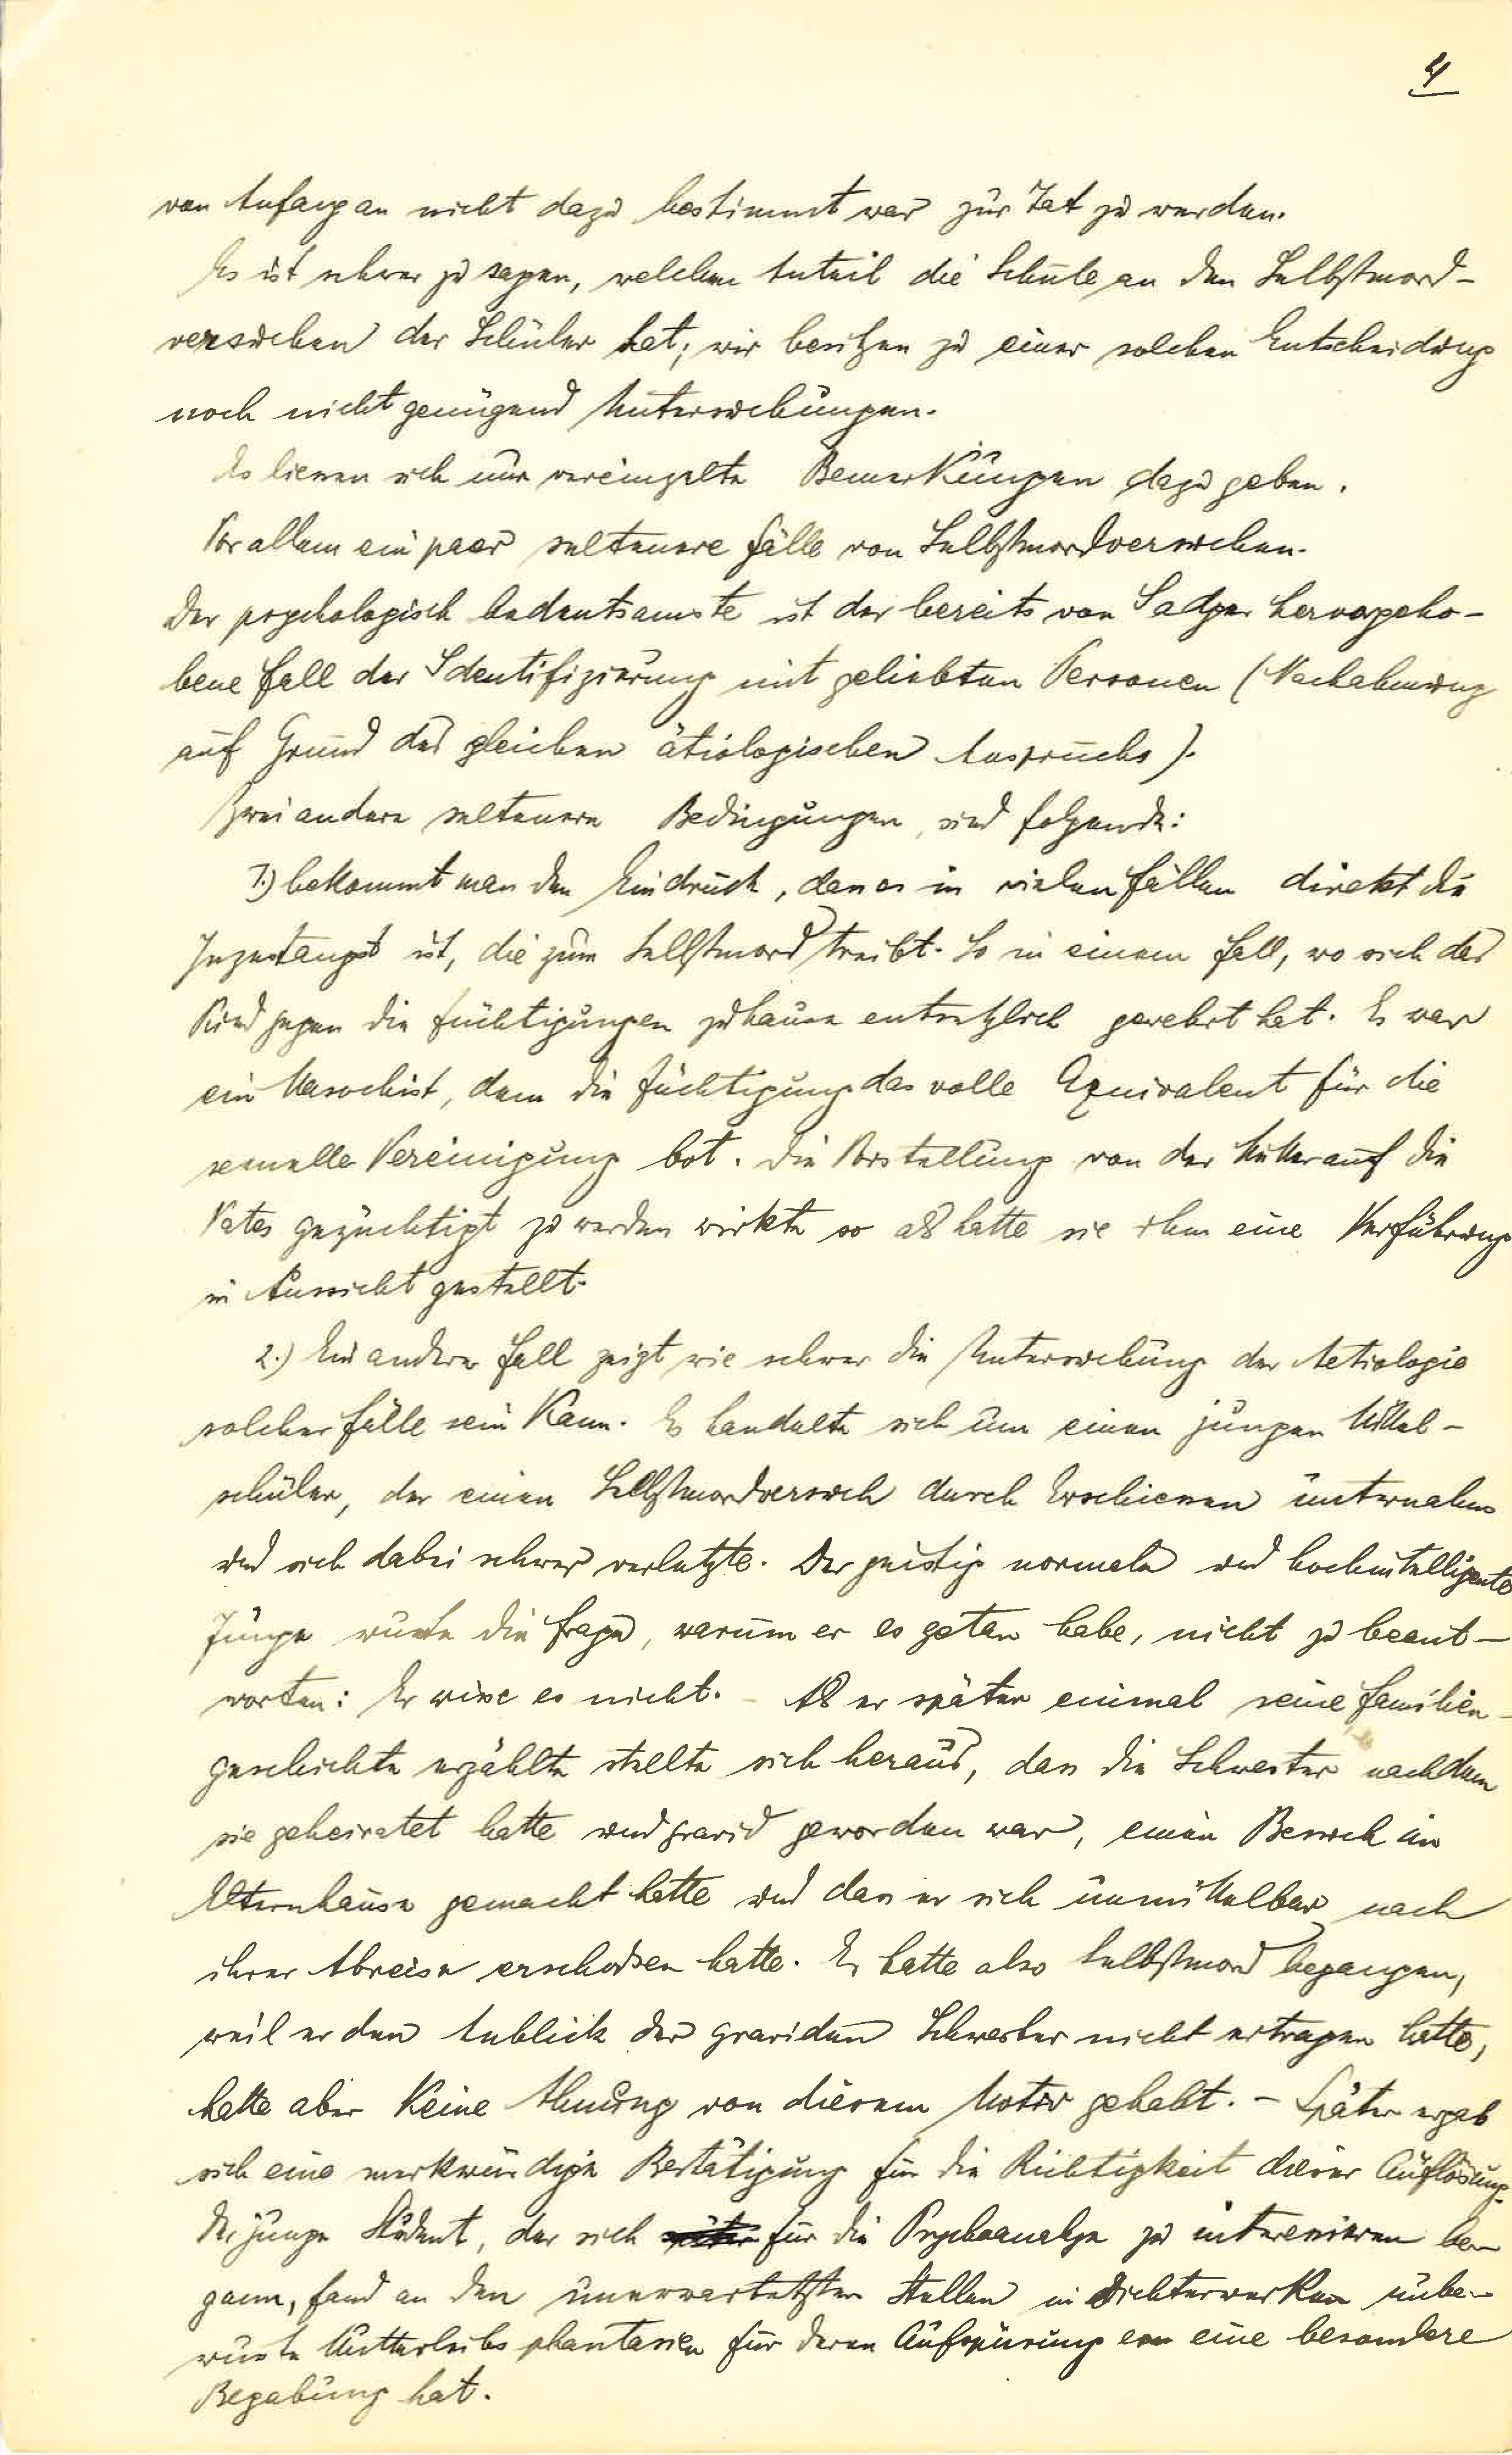 4
von Anfang an nicht dazu bestimmt war zur Tat zu werden.
Es ist schwer zu sagen, welchen Anteil die Schule an den Selbstmord-
versuchen der Schüler hat; wir besitzen zu einer solchen Entscheidung
noch nicht genügend Untersuchungen.
Es liessen sich nur vereinzelte Bemerkungen dazu geben.
Vor allem ein paar seltenere Fälle von Selbstmordversuchen.
Der psychologisch bedeutsamste ist der bereits von Sadger hervorgeho-
bene Fall der Identifizierung mit geliebten Personen (Nachahmung
auf Grund des gleichen ätiologischen Anspruchs).
Zwei andere seltenere Bedingungen sind folgende:
1.) bekommt man den Eindruck, dass es in vielen Fällen direkt die
Inzestangst ist, die zum Selbstmord treibt. So in einem Fall, wo sich das
Kind gegen die Züchtigungen zuhause entsetzlich gewehrt hat. Es war
ein Masochist, dem die Züchtigung das volle Equivalent für die
sexuelle Vereinigung bot. Die Vorstellung von der Mutter auf die
Nates gezüchtigt zu werden wirkte so als hätte sie ihm eine Verführung
in Aussicht gestellt.
2.) Ein anderer Fall zeigt wie schwer die Untersuchung der Aetiologie
solcher Fälle sein kann. Es handelte sich um einen jungen Mittel-
schüler, der einen Selbstmordversuch durch Erschiessen unternahm
und sich dabei schwer verletzte. Der geistig normale und hochintelligente
Junge wusste die Frage, warum er es getan habe, nicht zu beant-
worten: Er wisse es nicht. – Als er später einmal seine Familien-
geschichte erzählte stellte sich heraus, dass die Schwester nachdem
sie geheiratet hatte und gravid geworden war, einen Besuch im
Elternhause gemacht hatte und dass er sich unmittelbar nach
ihrer Abreise erschossen hatte. Er hatte also Selbstmord begangen,
weil er den Anblick der graviden Schwester nicht ertragen hatte,
hatte aber keine Ahnung von diesem Motiv gehabt. – Später ergab
sich eine merkwürdige Bestätigung für die Richtigkeit dieser Auflösung.
Der junge Student, der sich später für die Psychoanalyse zu interessieren be-
gann, fand an den unerwartetsten Stellen in Dichterwerken unbe-
wusste Mutterleibsphantasien für deren Aufspürung er eine besondere
Begabung hat.